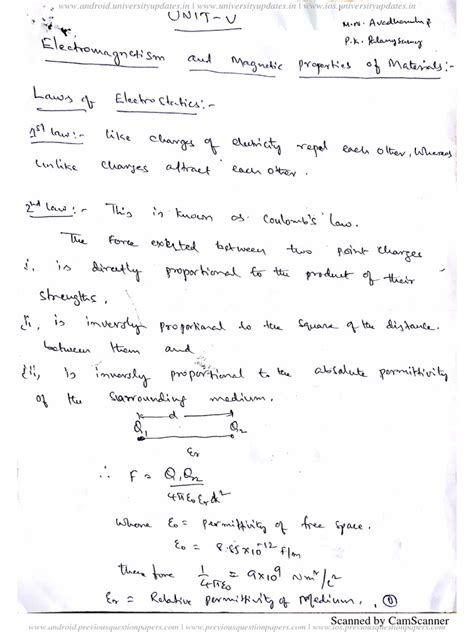 www.android.universityupdates.in | www.universityupdates.in | www.ios.universityupdates.in
UNIT-V
Electromagnetism and Magnetic properties of Materials:-
Laws of Electrostatics:-
1st law:- like charges of electricity repel each other, whereas
unlike charges attract each other.
2nd law:- This is known as Coulomb's law.
The Force exerted between two point charges
i, is directly proportional to the product of their
strengths,
ii, is inversly proportional to the square of the distance.
between them and
iii, is inversly proportional to the absolute permittivity
of the surrounding medium.
d
Q1 Q2
εr
∴ F = Q1Q2 / 4πε0εrd²
Where ε0 = permittivity of free space.
ε0 = 8.85x10⁻¹² F/m
therefore 1/4πε0 = 9x10⁹ Nm²/c²
εr = Relative permittivity of Medium. ①
Scanned by CamScanner
www.android.previousquestionpapers.com | www.previousquestionpapers.com | www.ios.previousquestionpapers.com